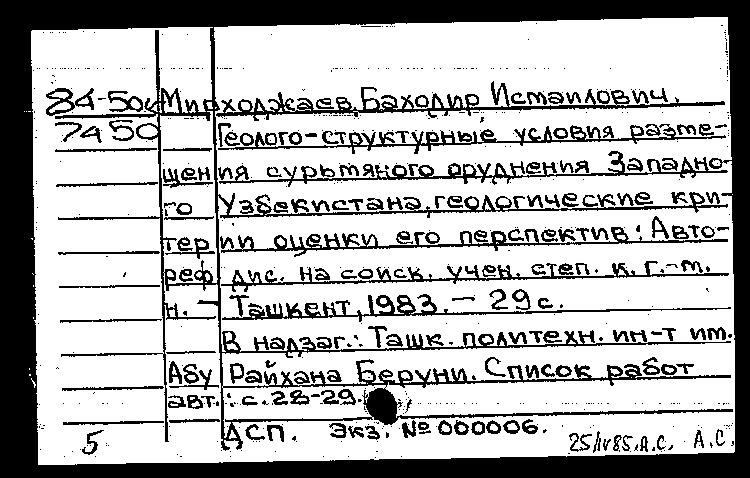 84-50к Мирходжаев, Баходир Исмаилович.
7450 Геолого-структурные условия разме-
щения сурьмяного оруднения Западно-
го Узбекистана, геологические кри-
терии оценки его перспектив: Авто-
реф. дис. на соиск. учен. степ. к. г.-м.
н. - Ташкент, 1983. - 29 с.
В надзаг.: Ташк. политехн. ин-т им.
Абу Райхана Беруни. Список работ
авт.: с. 28-29.
ДСП. Экз. № 000006.
5 25/IV85. А.С. А.С.